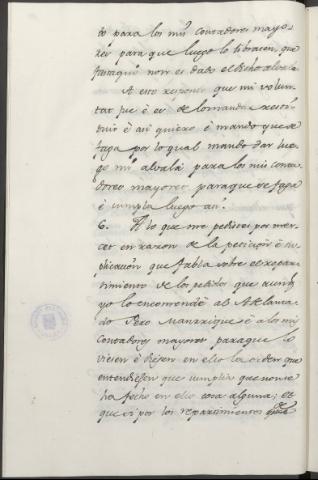 to para los mis Contadores mayo-
res para que luego lo librasen, que
fasta aqui non es dado el dicho alvalá.
A esto respondo que mi volun-
tat fue é es de lo mandar resti-
tuir é asi quiero é mando que se
faga por lo qual mando dar lue-
go mi alvalá para los mis conta-
dores mayores para que se faga
é cumpla luego asi.
6. A lo que me pedistes por mer-
cet en razon de la peticion é su-
plicacion que fabla sobre el repar-
timiento de los pedidos que aun
yo lo encomendé al Adelanta-
do Pero Manrrique é a los mis
Contadores mayores para que lo
viesen é diesen en ello la orden que
entendiesen que cumplia que non se
ha fecho en ello cosa alguna; et
que si por los repartimientos que